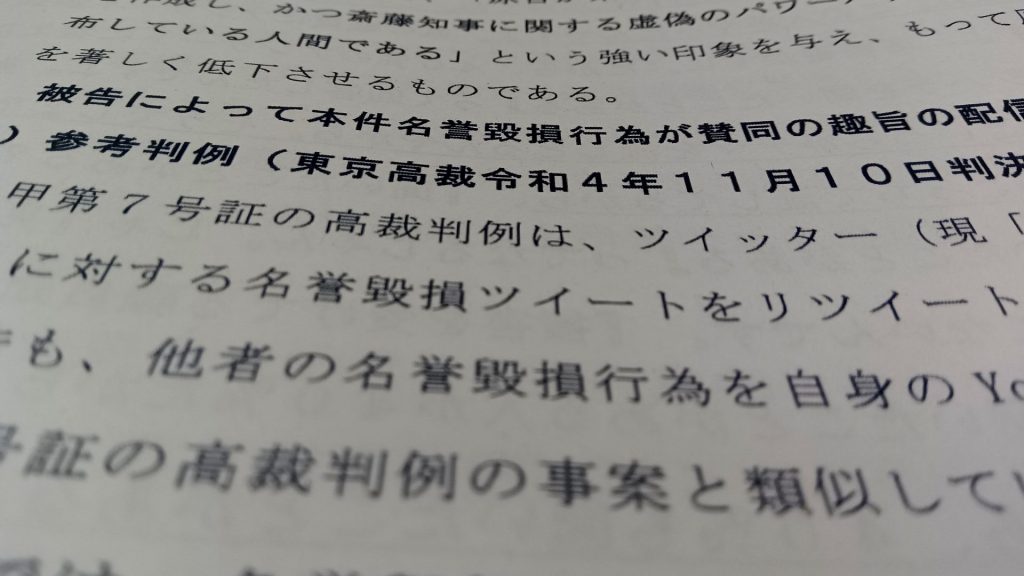 し、かつ斎藤知事に関する虚偽のパワー
布している人間である」という強い印象を与え、もって
を著しく低下させるものである。
被告によって本件名誉毀損行為が賛同の趣旨の配信
）参考判例（東京高裁令和４年１１月１０日判決
甲第７号証の高裁判例は、ツイッター（現「
に対する名誉毀損ツイートをリツイート
も、他者の名誉毀損行為を自身のYo
号証の高裁判例の事案と類似してい